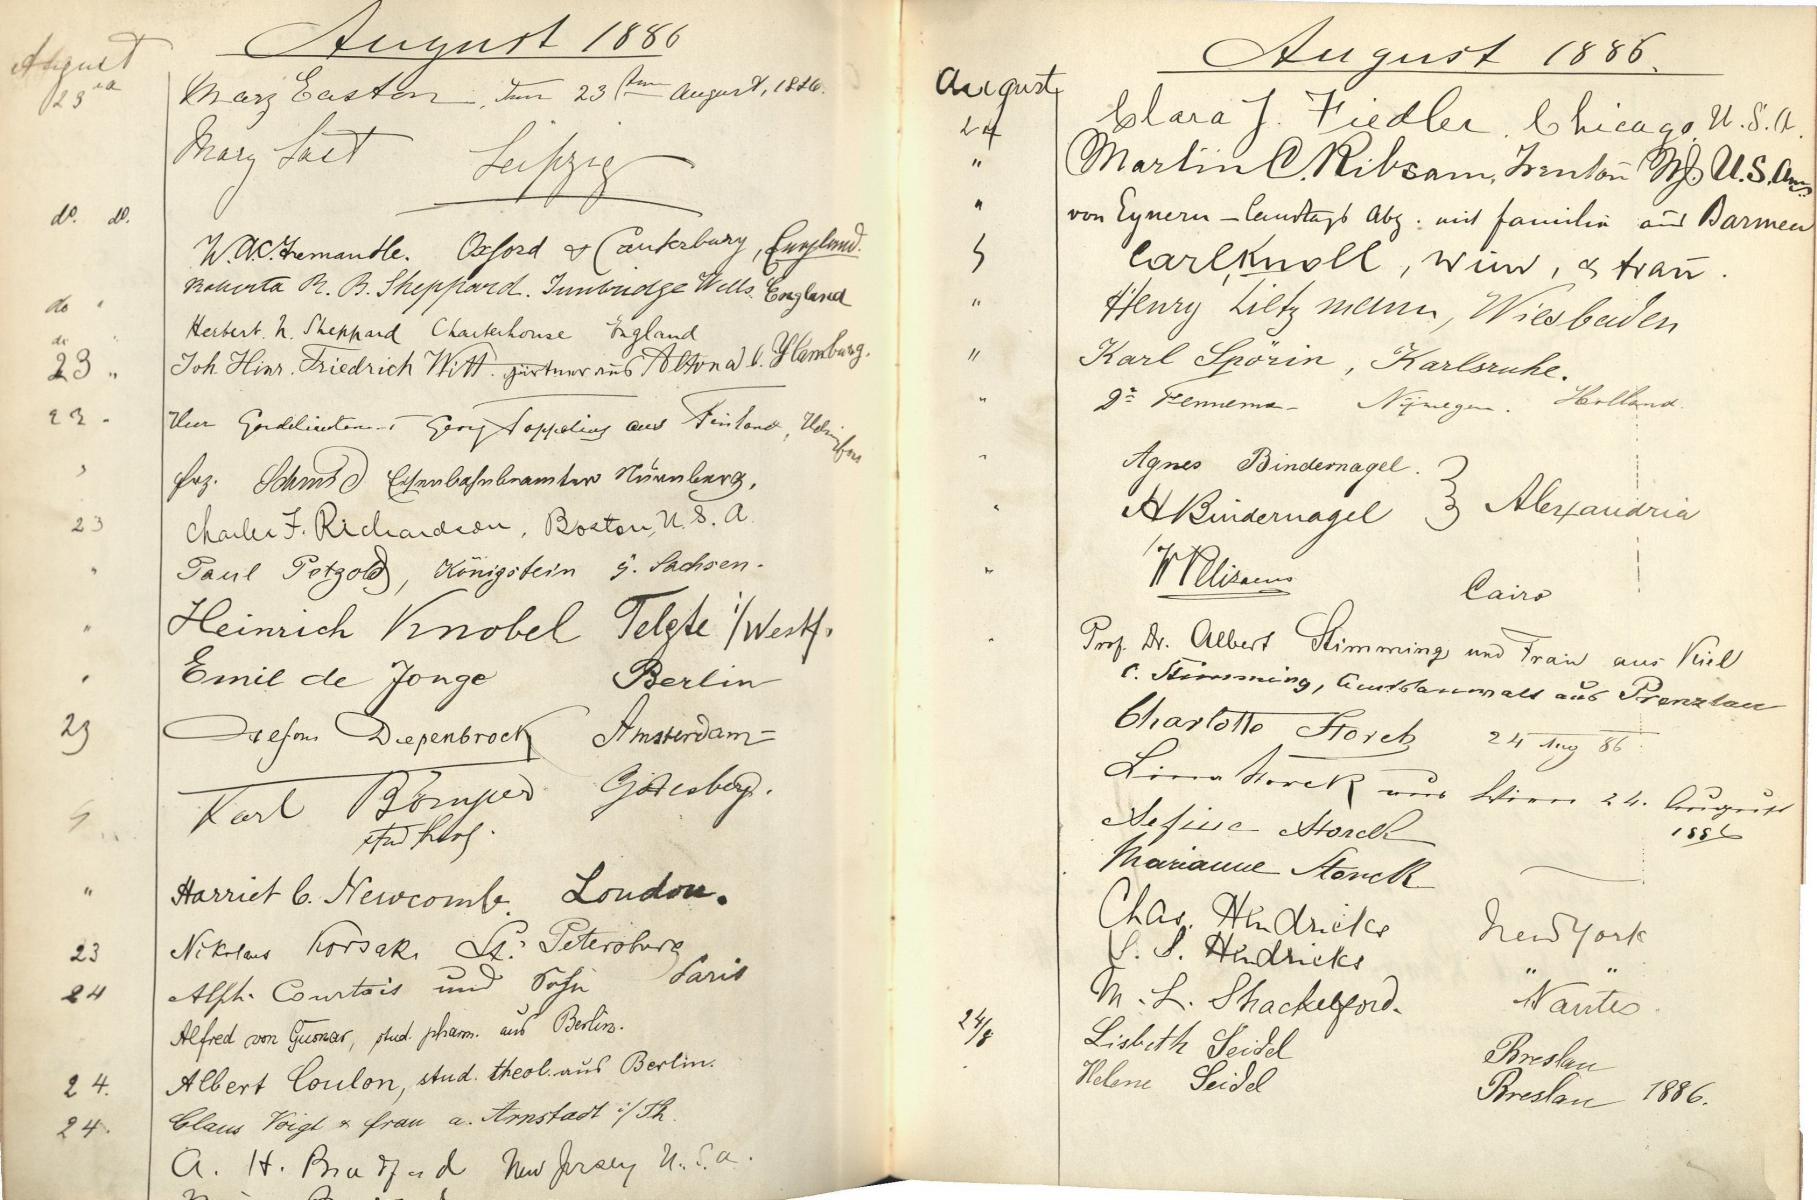 August 1886
August
23
Mary Easton, 23 August, 1886.
Mary
Leipzig
do. do.
W.A.C. Fremantle. Oxford & Canterbury, England.
do "
Roberta R. B. Sheppard. Tunbridge Wells. England
do "
Herbert N. Sheppard Charterhouse England
23 "
Joh. Hinr. Friedrich Witt. Gärtner aus Altona b. Hamburg.
23 -
Georg aus Finland,
"
Frz. Schmid Eisenbahnbeamter Nürnberg.
23
Charles F. Richardson, Boston, U. S. A
"
Paul Petzold, Königstein Sachsen.
"
Heinrich Knobel Telgte i/Westf.
"
Emil de Jonge Berlin
23
Diepenbrock Amsterdam
Karl Godesberg.
"
Harriet C. Newcomb. London.
23
Nikolaus Korsak. St. Petersburg
24
Alph. Courtois und Sohn Paris
Alfred von stud. pharm. aus Berlin.
24.
Albert Coulon, stud. theol. aus Berlin.
24.
Claus Voigt & Frau a. Arnstadt i/Th.
A. H. Bradford New Jersey U.S.a.
August 1886.
August
24
Clara J. Fiedler. Chicago, U.S.A.
"
Martin C. Ribsam, Trenton NJ. U.S. Am
"
von Eynern - Landtags Abg. mit Familie aus Barmen
Carl Knoll, Wien, & Frau.
"
Henry Lietzmann, Wiesbaden
"
Karl Spörin, Karlsruhe.
"
Dr Fennema - Nijmegen. Holland.
"
Agnes Bindernagel.
"
H Bindernagel } Alexandria
"
W
Cairo
"
Prof. Dr. Albert Stimming und Frau aus Kiel
C. Stimming, Amtsanwalt aus Prenzlau
Charlotte Storck 24 Aug 86
Lina Storck aus Wien 24. August
1886
Storck
Marianne Storck
Chas. Hendricks New York
S. S. Hendricks " "
M. L. Shackelford. Nantes.
24/8
Lisbeth Seidel Breslau
Helene Seidel Breslau 1886.